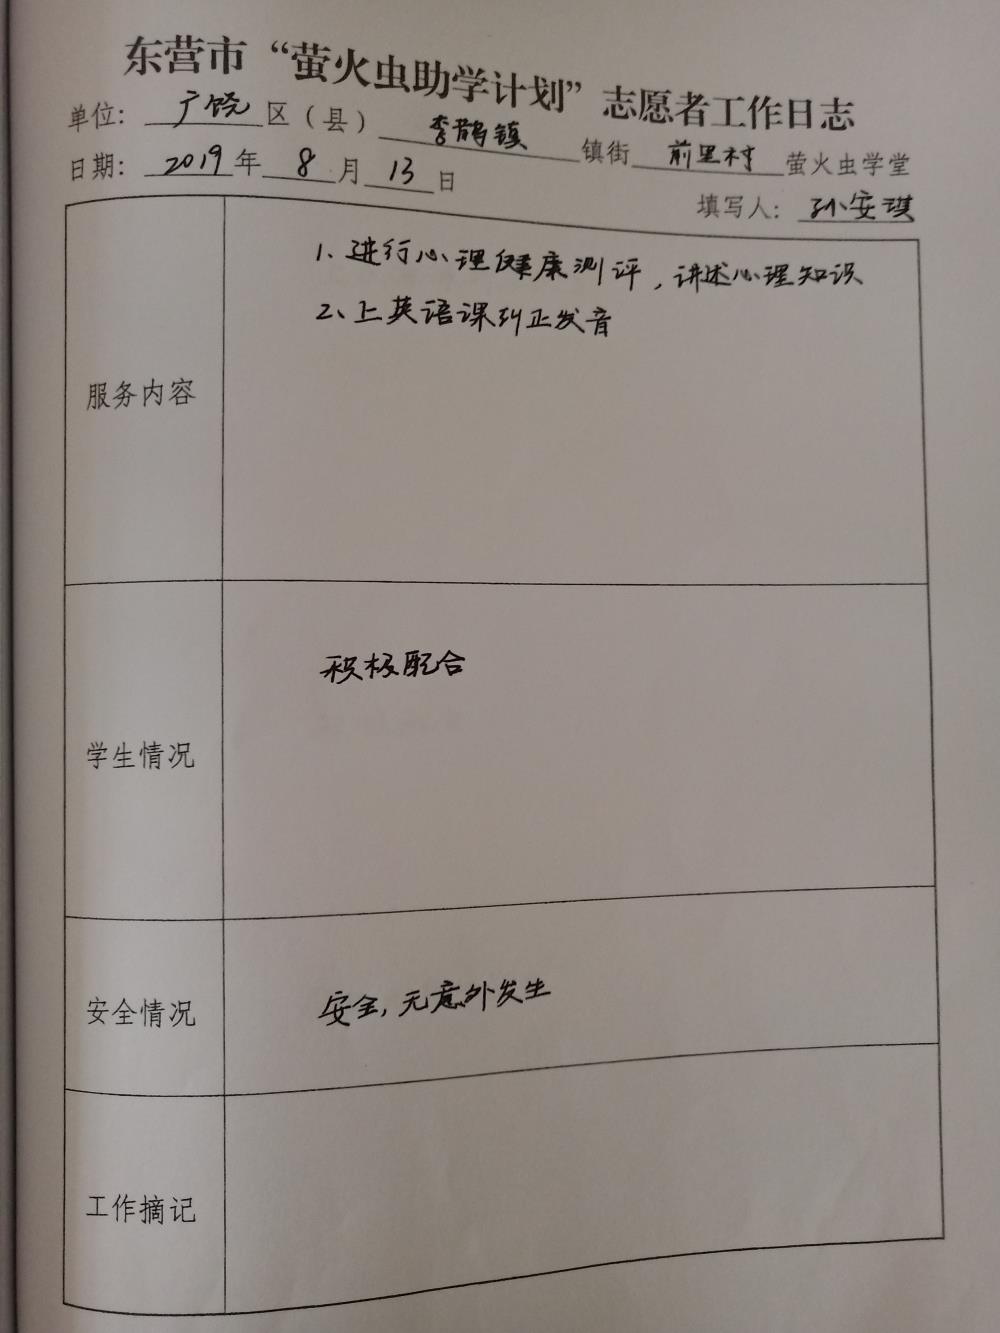 东营市“萤火虫助学计划”志愿者工作日志
单位：广饶区（县）李鹊镇镇街前里村萤火虫学堂
日期：2019年8月13日
填写人：孙安琪
服务内容
1、进行心理健康测评，讲述心理知识
2、上英语课纠正发音
学生情况
积极配合
安全情况
安全，无意外发生
工作摘记